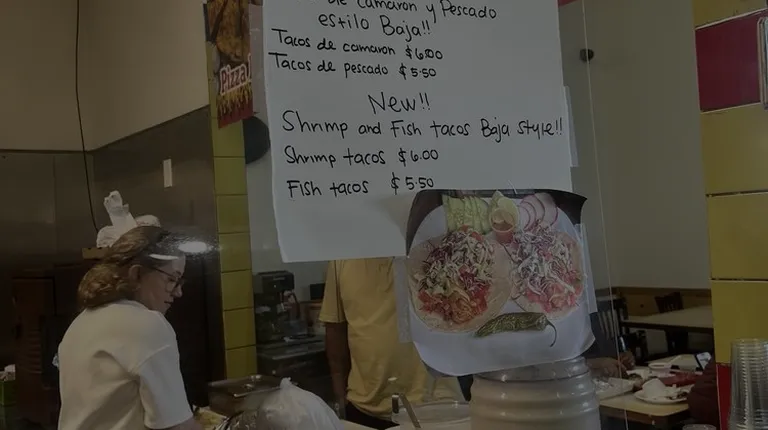 de camaron y Pescado
estilo Baja!!
Tacos de camaron $6.00
Tacos de pescado $5.50
New!!
Shrimp and Fish tacos Baja style!!
Shrimp tacos $6.00
Fish tacos $5.50
Pizza